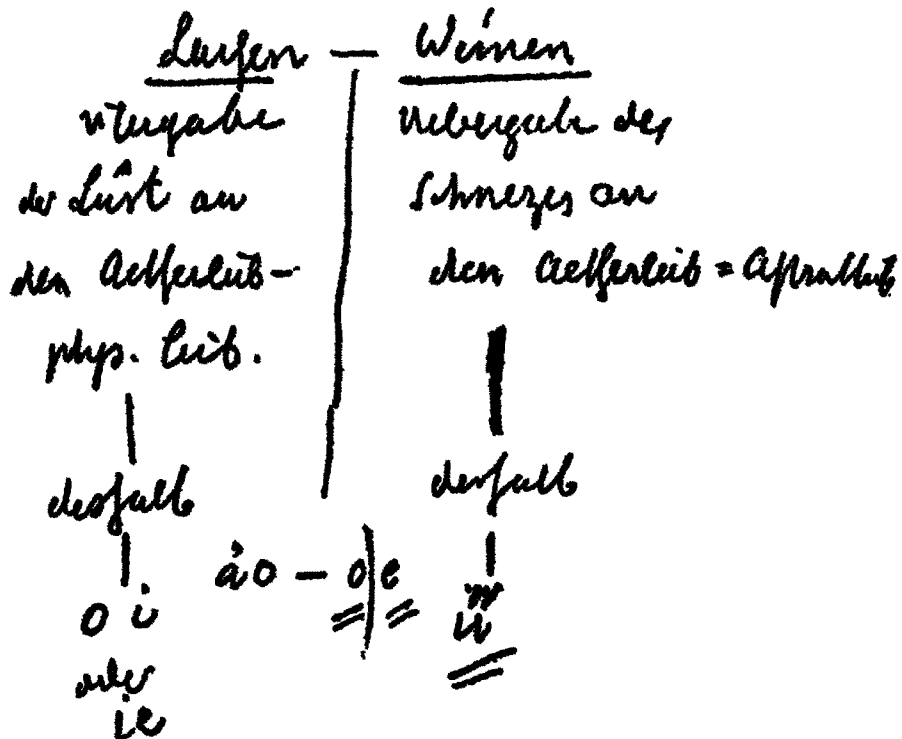 Lachen — Weinen
der Lust an
den Aetherleib –
phys. Leib.
deshalb
o i
oder
ie
ao – o e
Uebergabe des
Schmerzes an
den Aetherleib = Astralleib
deshalb
ü